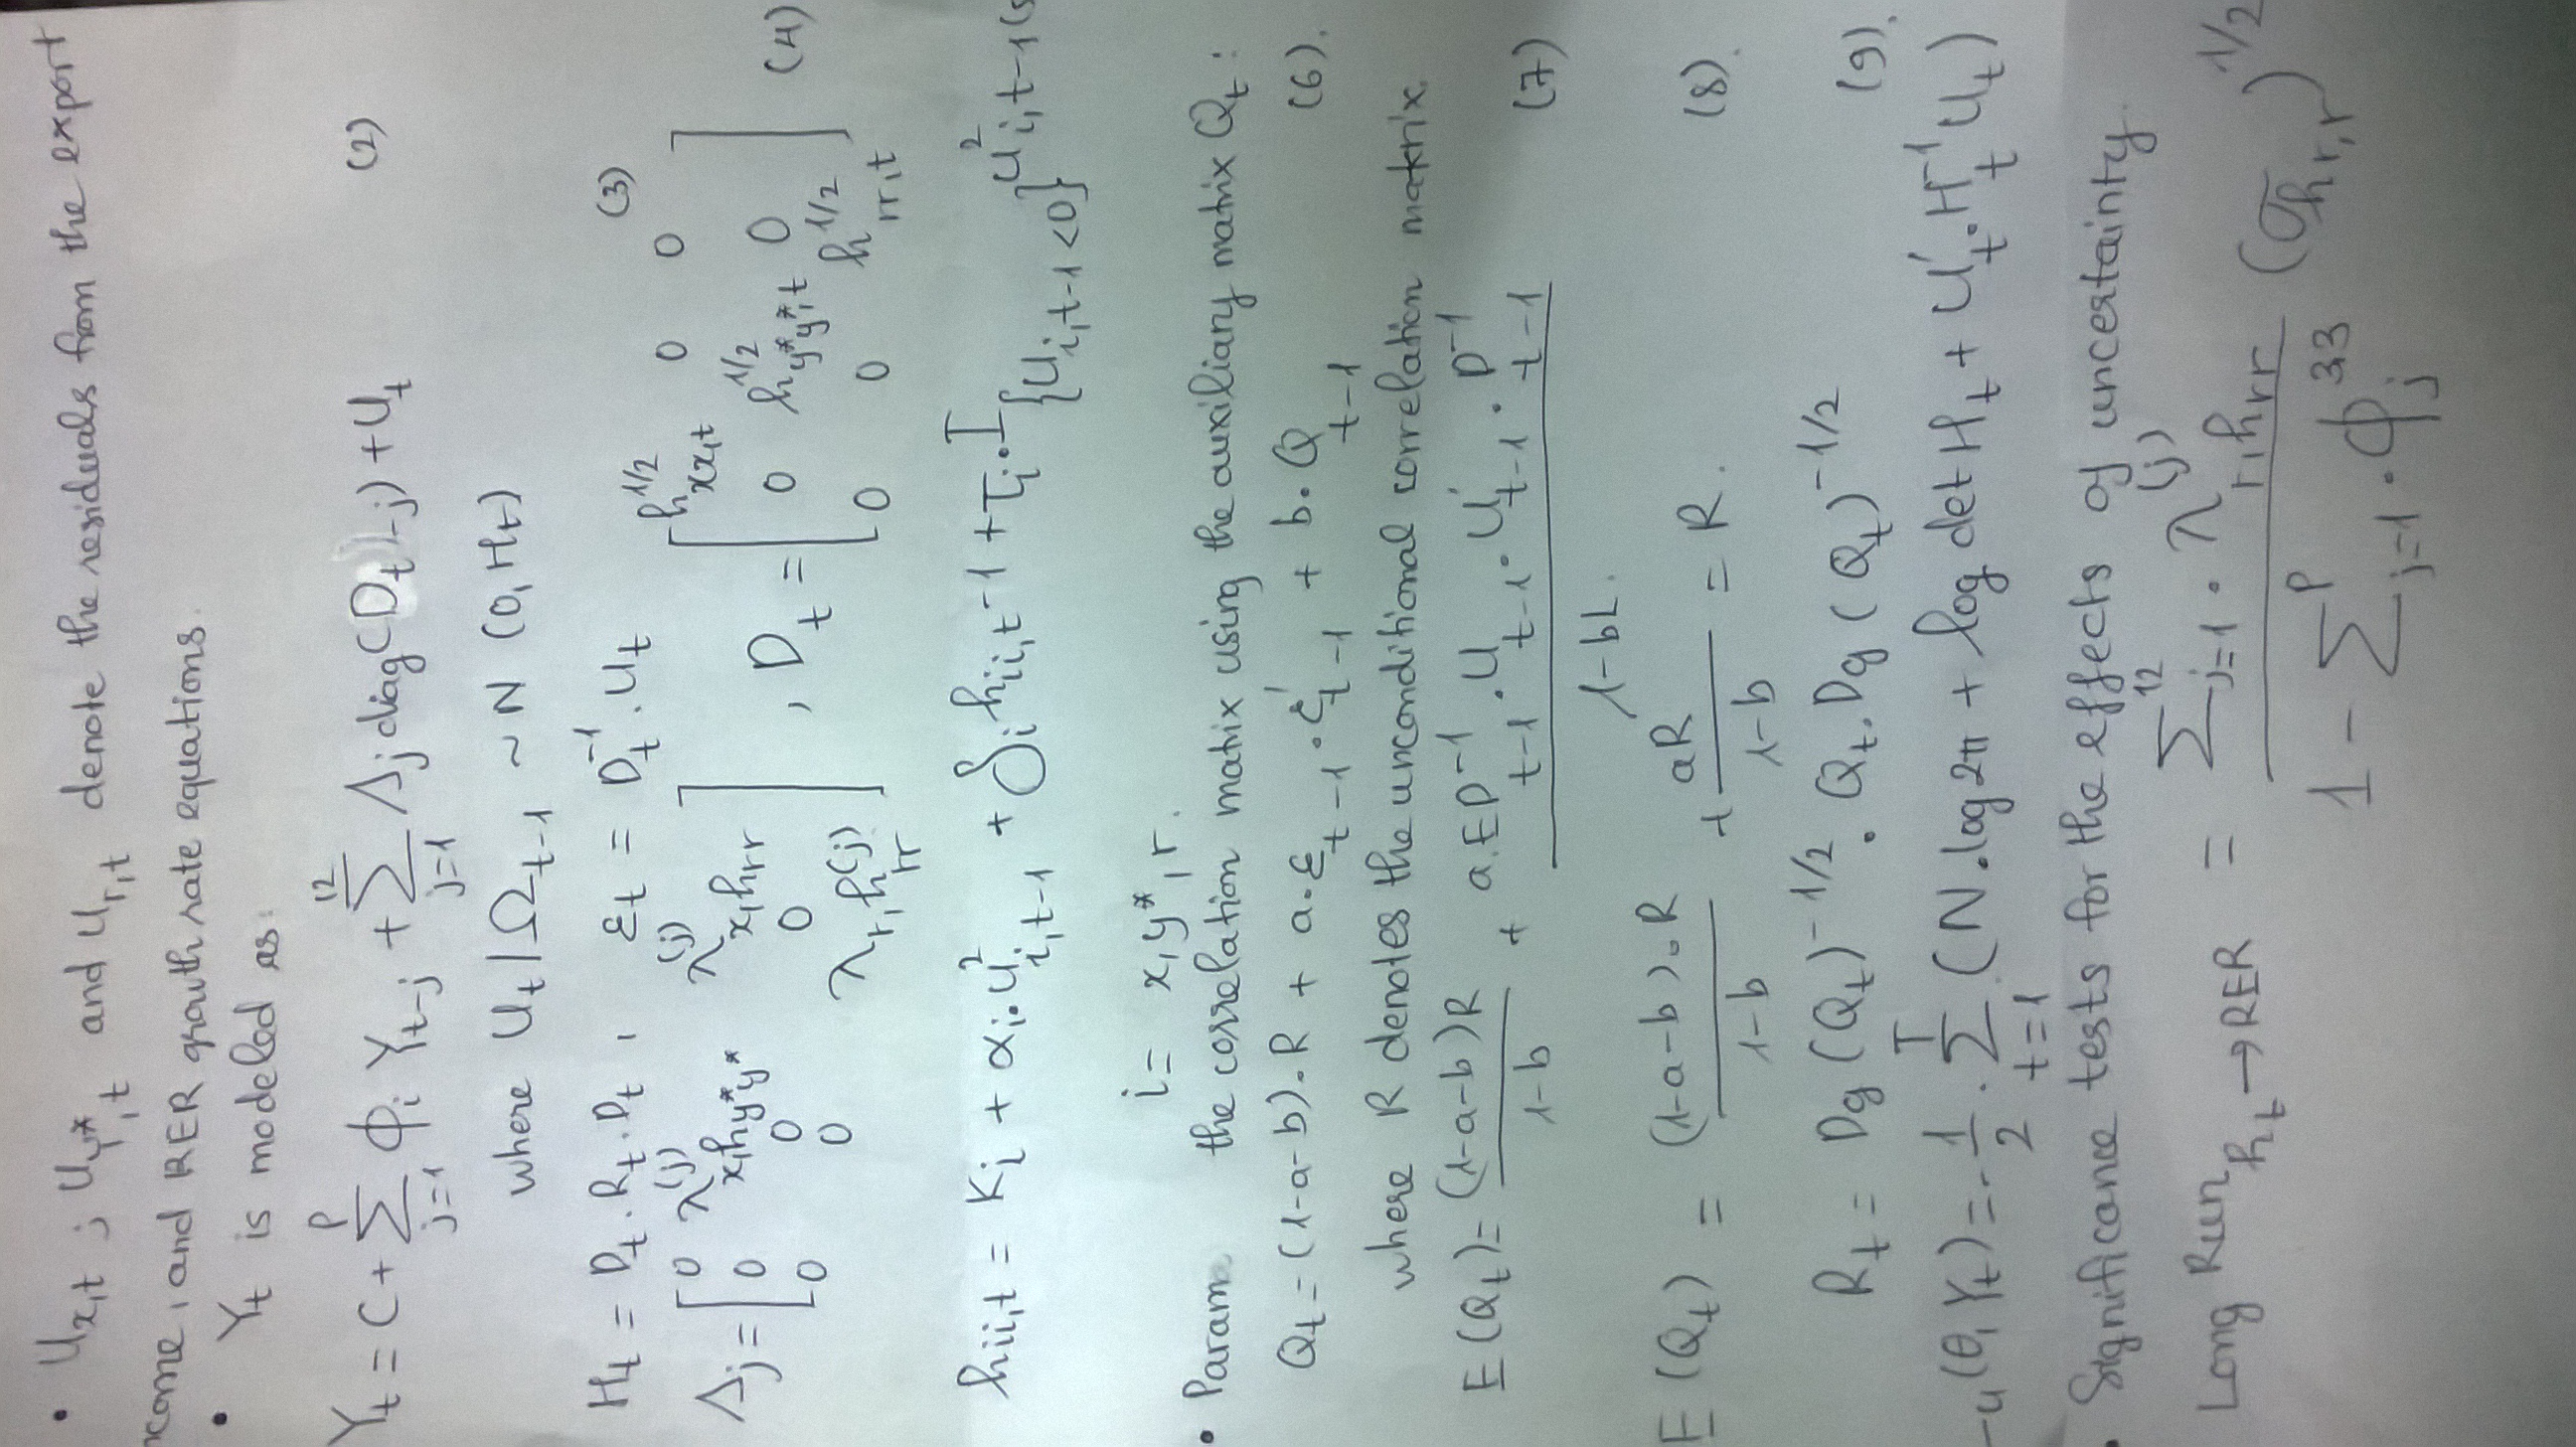 • U_{x,t} ; U_{y*,t} and U_{r,t} denote the residuals from the export
ncome, and RER growth rate equations.
• Y_t is modeled as:
Y_t = C + \sum_{j=1}^{P} Φ_i Y_{t-j} + \sum_{j=1}^{12} Λ_j diag(D_{t-j}) + U_t (2)
where U_t | Ω_{t-1} ~ N (0, H_t)
H_t = D_t . R_t . D_t , ε_t = D_t^{-1} . U_t (3)
Λ_j = [ 0 λ^{(j)}_{x,hy*y*} λ^{(j)}_{x,hrr} ; 0 0 0 ; 0 0 λ_{r,h^{(j)}_{rr}} ] , D_t = [ h^{1/2}_{xx,t} 0 0 ; 0 h^{1/2}_{y*y*,t} 0 ; 0 0 h^{1/2}_{rr,t} ] (4)
h_{ii,t} = K_i + α_i . U^2_{i,t-1} + δ_i h_{ii,t-1} + τ_i . I_{{U_{i,t-1} < 0}} U^2_{i,t-1} (5
i = x, y*, r.
• Param the correlation matrix using the auxiliary matrix Q_t :
Q_t = (1-a-b) . R + a . ε_{t-1} . ε'_{t-1} + b . Q_{t-1} (6).
where R denotes the unconditional correlation matrix.
E(Q_t) = \frac{(1-a-b)R}{1-b} + \frac{a.ED^{-1}_{t-1} . U_{t-1} . U'_{t-1} . D^{-1}_{t-1}}{1-bL.} (7)
E(Q_t) = \frac{(1-a-b).R}{1-b} + \frac{aR}{1-b} = R. (8).
R_t = Dg(Q_t)^{-1/2} . Q_t . Dg(Q_t)^{-1/2} (9).
-u(θ, Y_t) = -\frac{1}{2} . \sum_{t=1}^{T} (N . log 2π + log det H_t + U'_t . H_t^{-1} U_t)
• Significance tests for the effects of uncertainty.
Long Run_{h_t→RER} = \frac{\sum_{j=1}^{12} . λ^{(j)}_{r,hrr}}{1 - \sum_{j=1}^{P} . Φ_j^{33}} (σ_{hr,r})^{1/2}